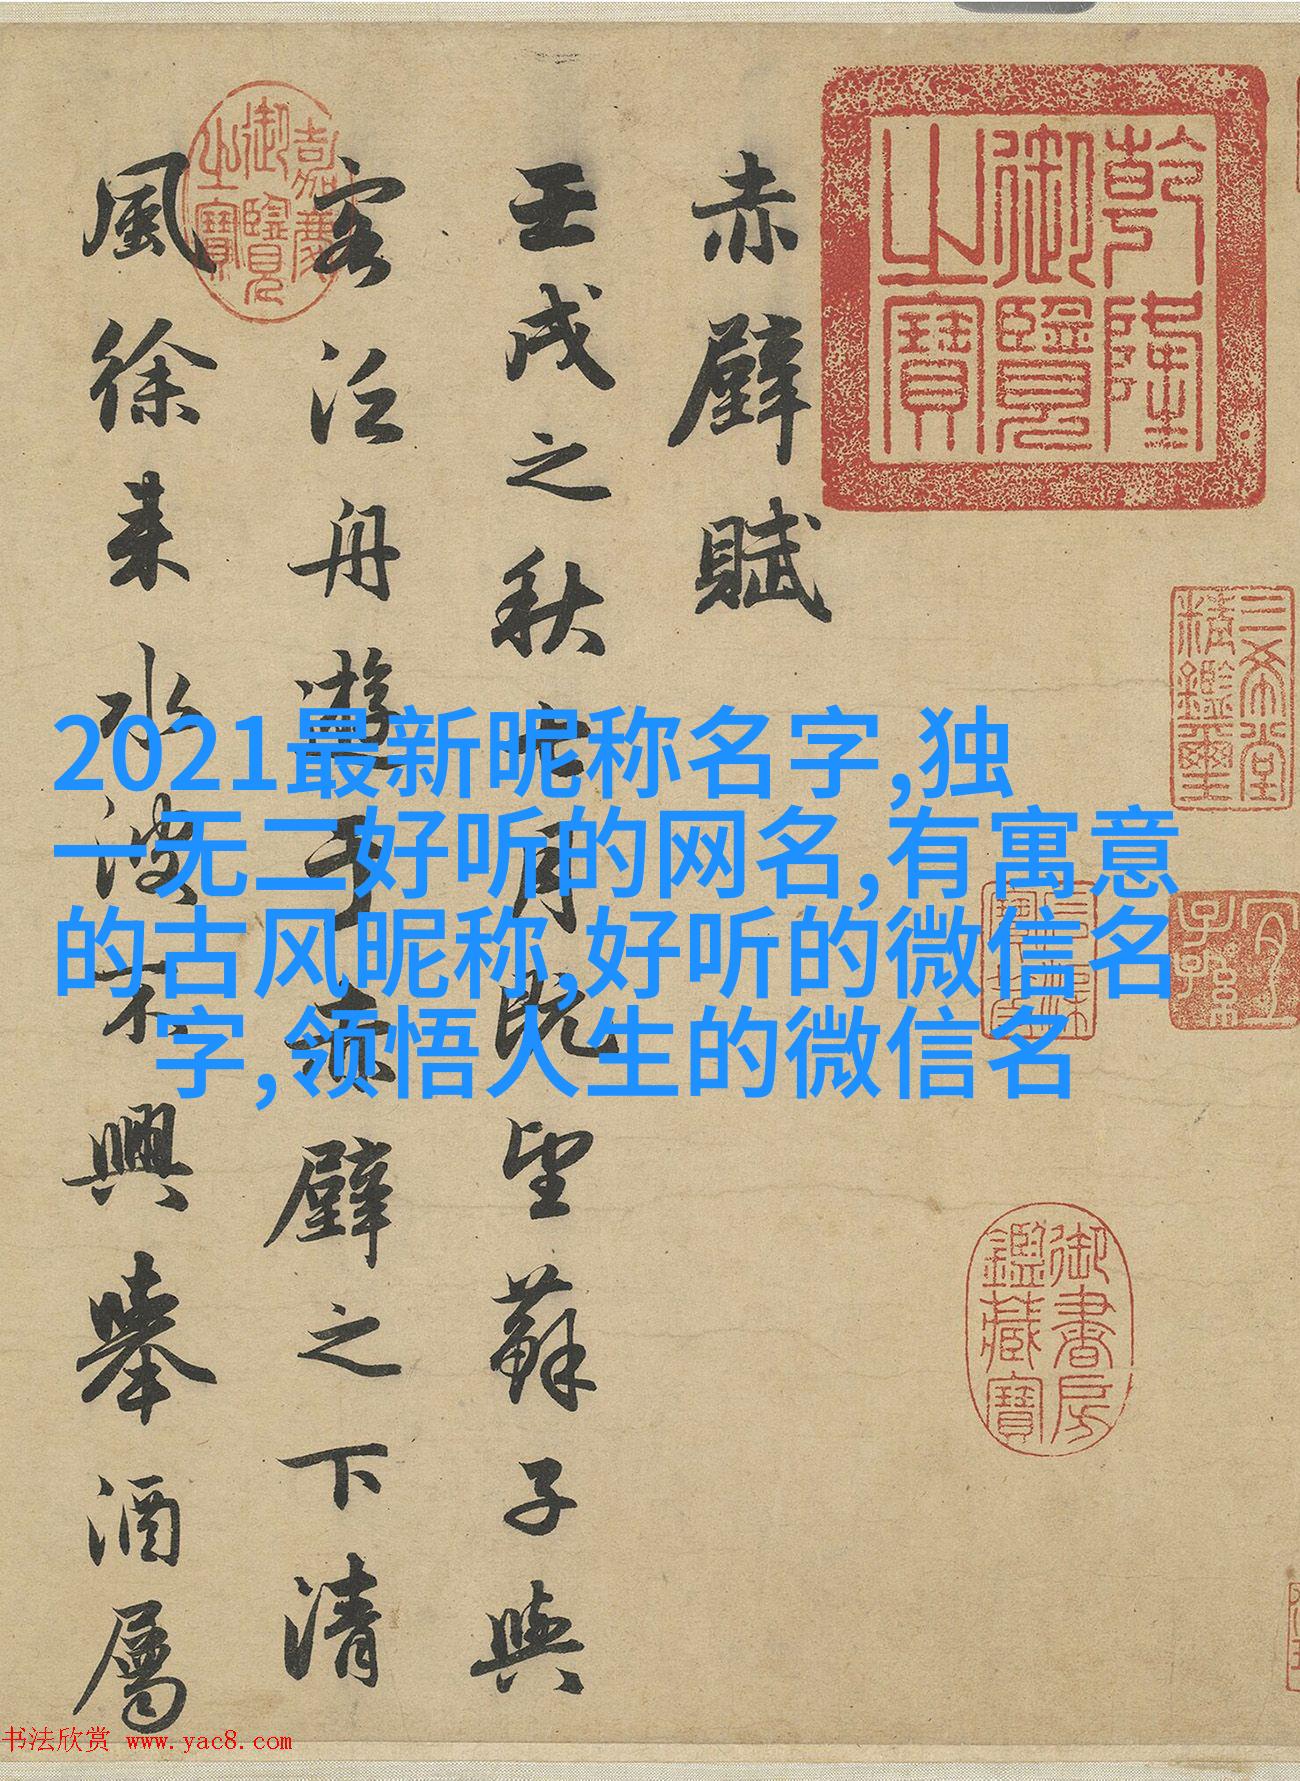 乾隆御覽之寶
三希堂精鑑璽
宜子孫
御書房鑑藏寶
赤壁賦
壬戌之秋七月既望蘇子與
客泛舟遊于赤壁之下清
嘉慶御覽之寶
風徐来水波不興舉酒屬
2021最新昵称名字,独
一无二好听的网名,有寓意
的古风昵称,好听的微信名
字,领悟人生的微信名
书法欣赏 www.yac8.com